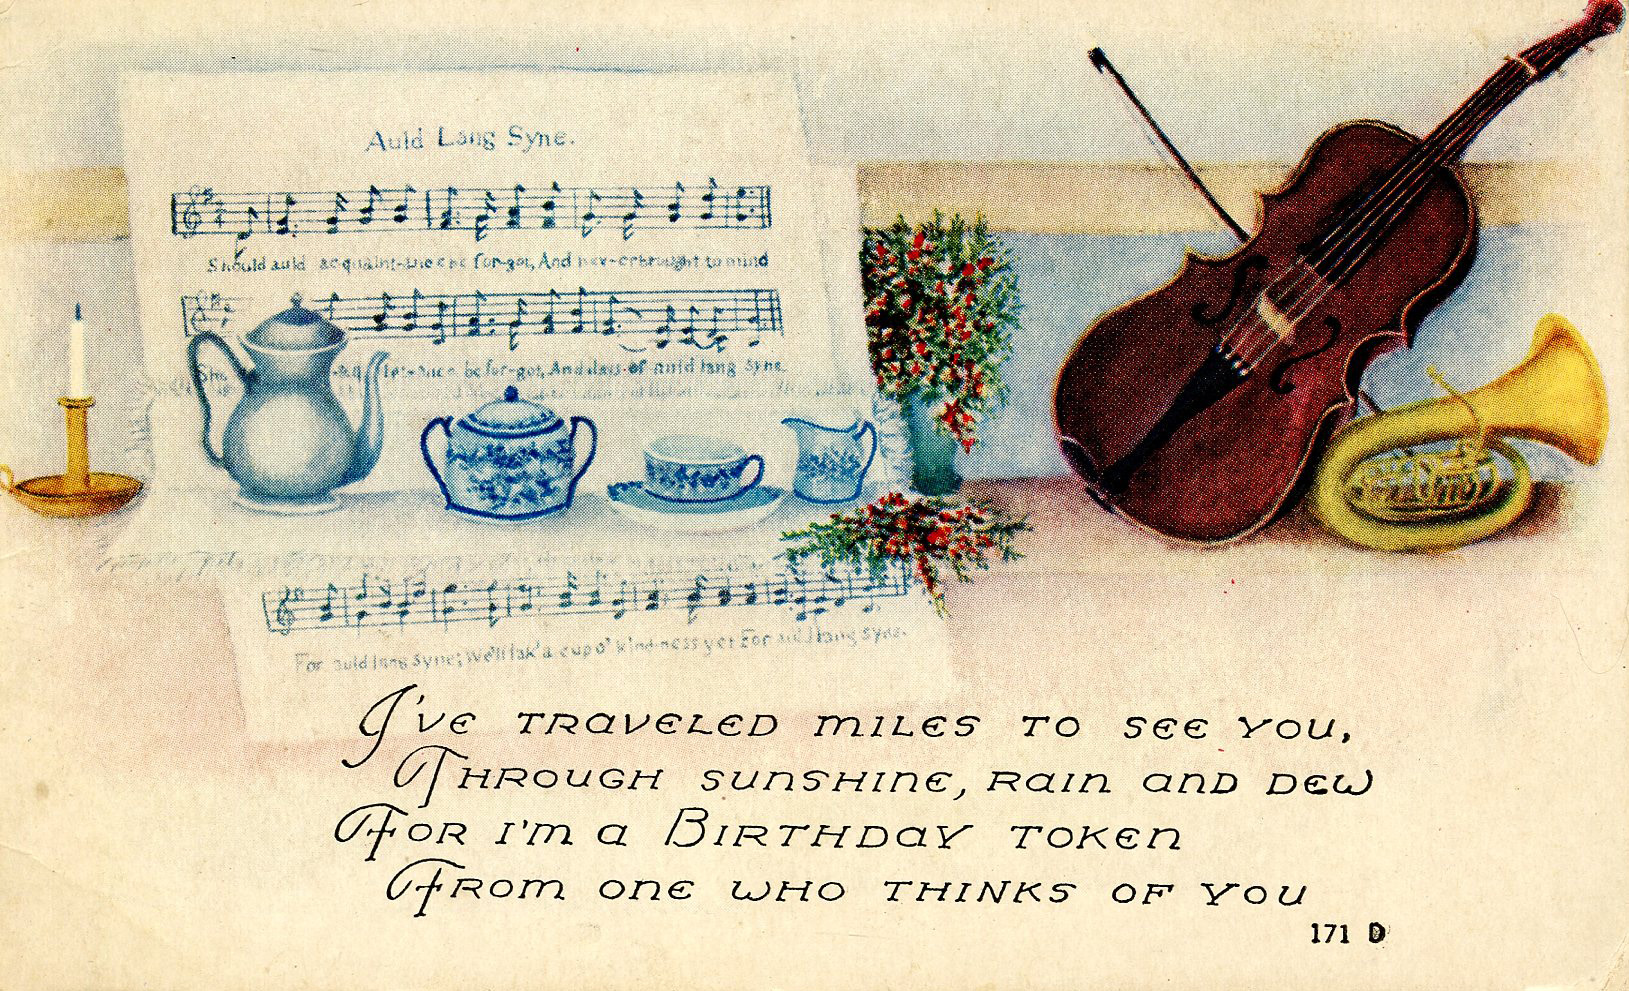 Auld Lang Syne.
Should auld acquaint-ance be for-got, And nev-er brought to mind
be for-got, And days of auld lang syne.
For auld lang syne; We'll tak' a cup o' kind-ness yet For auld lang syne.
I've traveled miles to see you,
Through sunshine, rain and dew
For I'm a Birthday token
From one who thinks of you
171 D